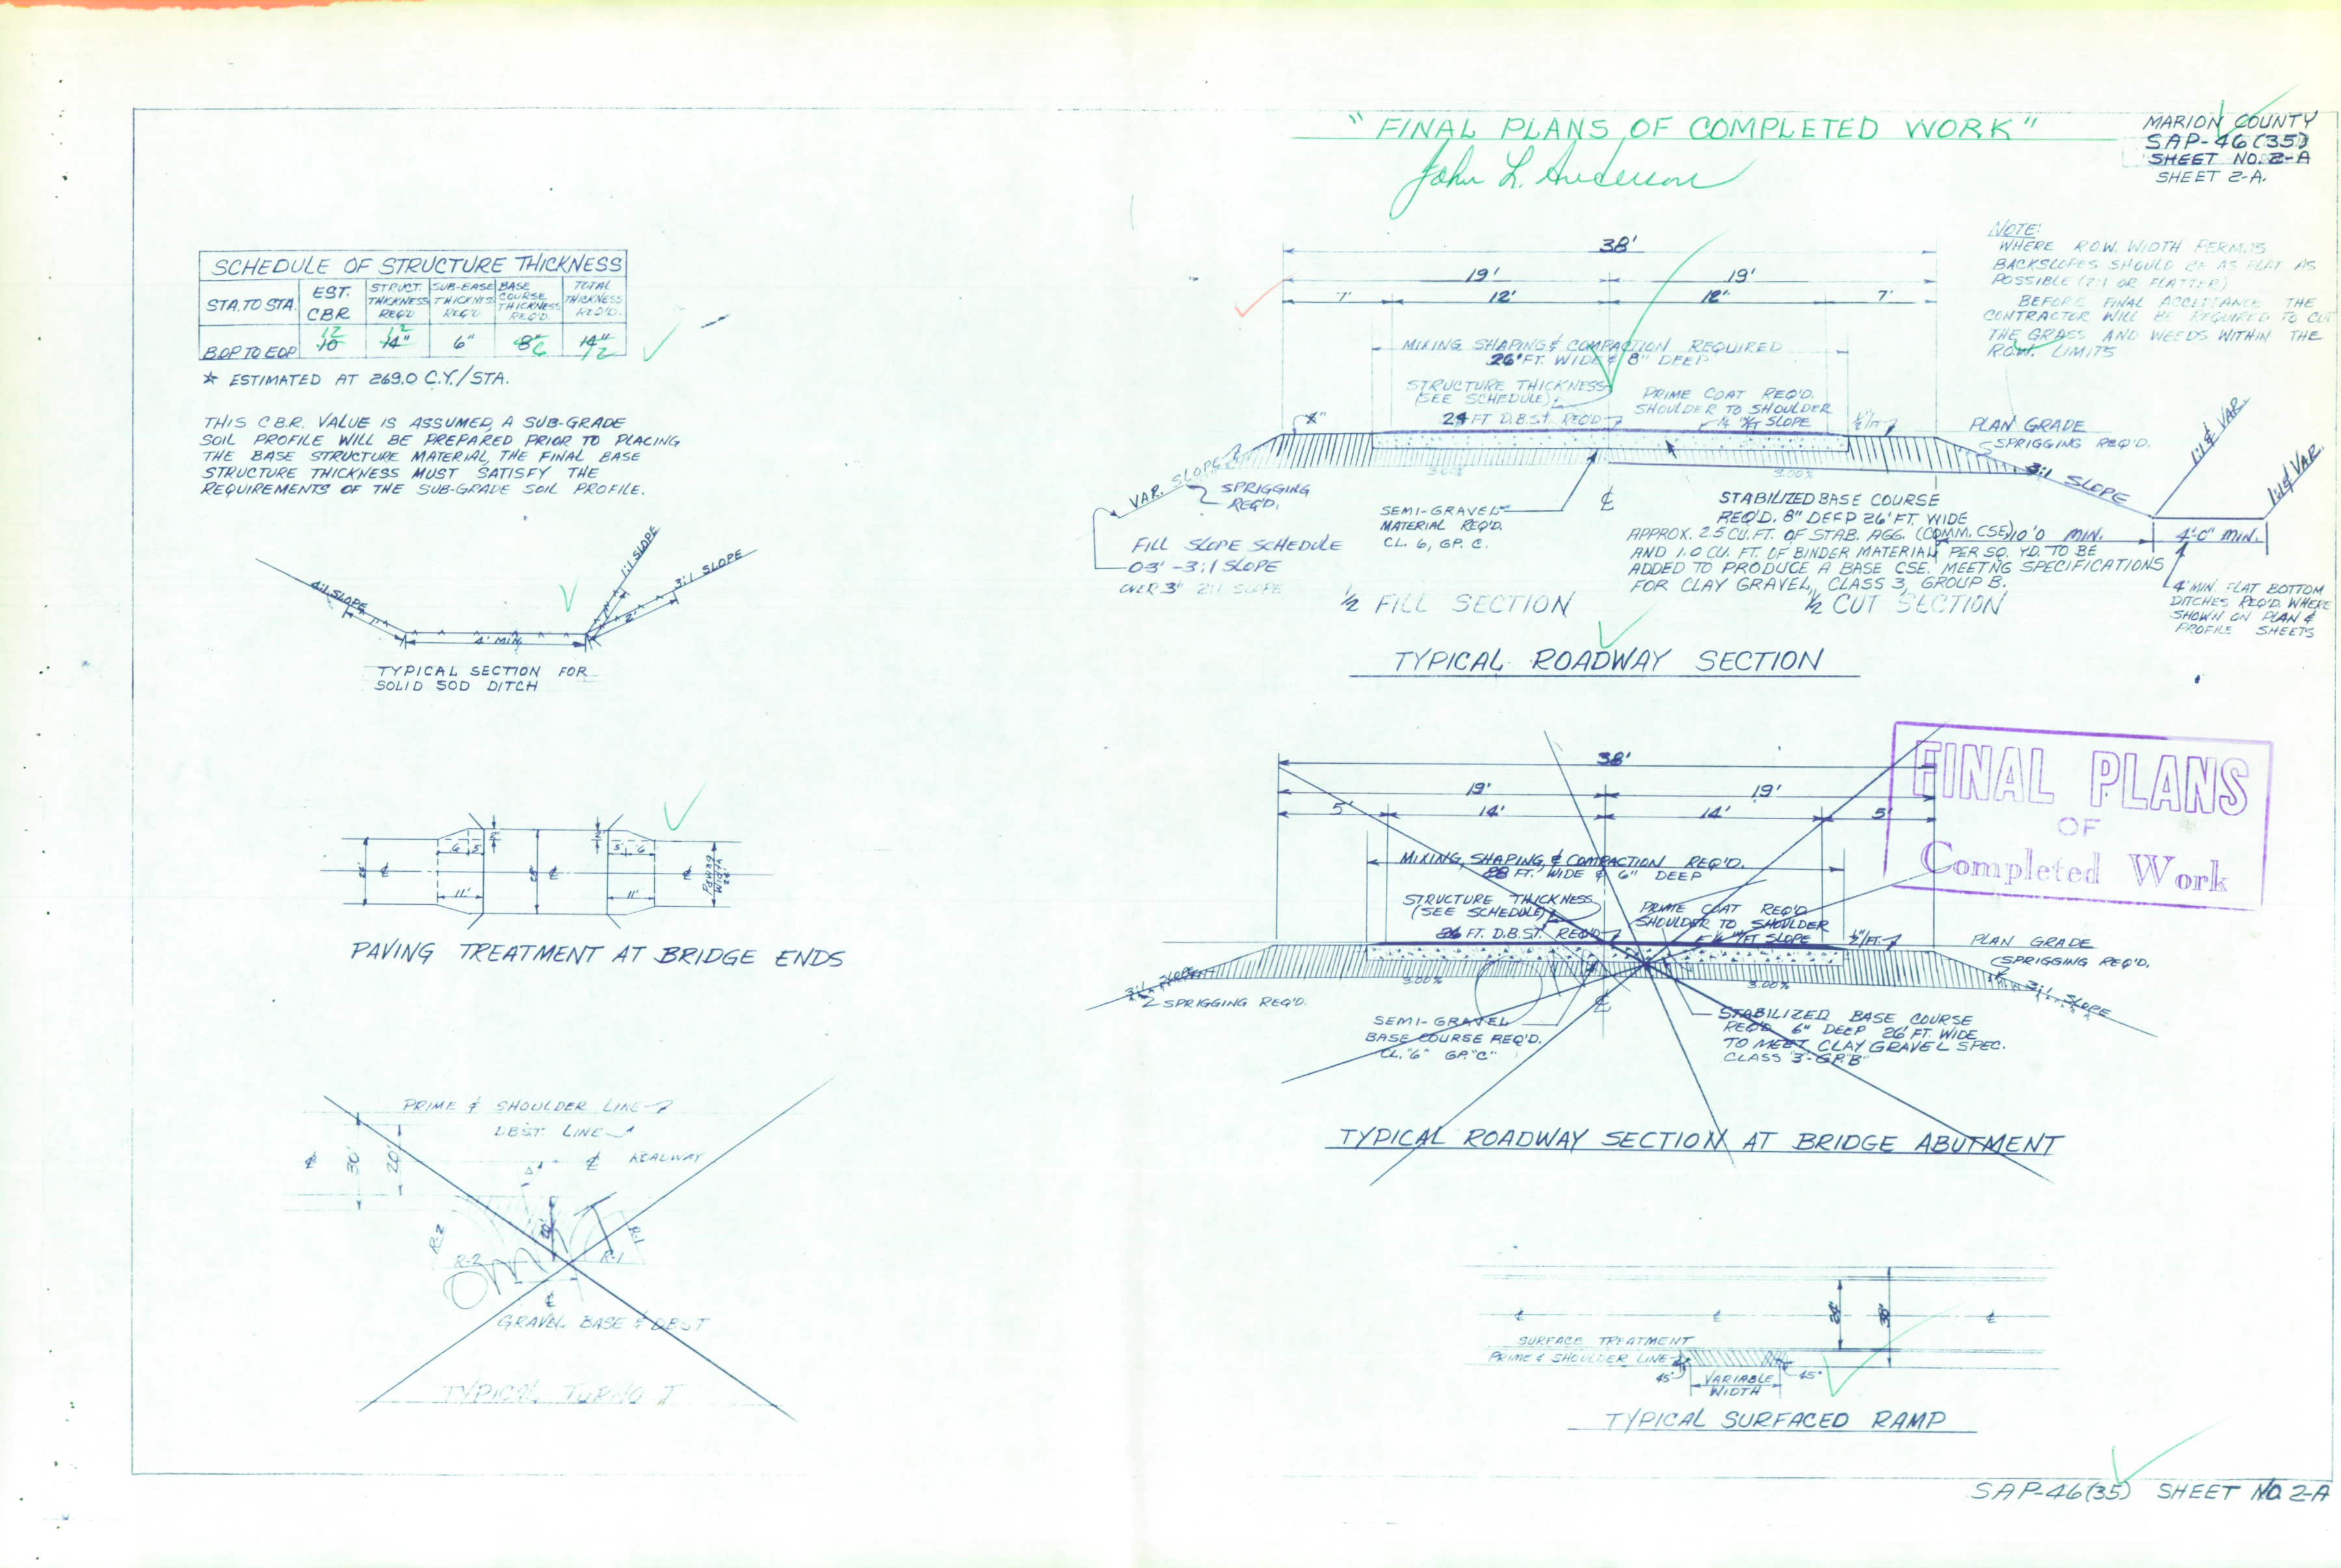 "FINAL PLANS OF COMPLETED WORK"
John L. Anderson
MARION COUNTY
SAP-46(35)
SHEET NO. 2-A
SHEET 2-A.
SCHEDULE OF STRUCTURE THICKNESS
STA. TO STA. EST. CBR STRUCT. THICKNESS REQ'D SUB-BASE THICKNES REQ'D BASE COURSE THICKNESS REQ'D. TOTAL THICKNESS REQ'D.
BOP TO EOP 12 10 12 14" 6" 8" 6 14" 12
★ ESTIMATED AT 269.0 C.Y./STA.
THIS C.B.R. VALUE IS ASSUMED, A SUB-GRADE
SOIL PROFILE WILL BE PREPARED PRIOR TO PLACING
THE BASE STRUCTURE MATERIAL, THE FINAL BASE
STRUCTURE THICKNESS MUST SATISFY THE
REQUIREMENTS OF THE SUB-GRADE SOIL PROFILE.
4:1 SLOPE
1:1 SLOPE
3:1 SLOPE
2'
4' MIN.
TYPICAL SECTION FOR
SOLID SOD DITCH
6 5
5 6
11'
11'
℄
℄
℄
PAVING WIDTH
PAVING TREATMENT AT BRIDGE ENDS
PRIME & SHOULDER LINE
DBST LINE
℄ ROADWAY
℄
30'
20'
R-2
R-2
R-1
R-1
OMIT
℄
GRAVEL BASE & DBST
TYPICAL TURNOUT
38'
19' 19'
7' 12' 12' 7'
MIXING SHAPING & COMPACTION REQUIRED
26' FT. WIDE & 8" DEEP
STRUCTURE THICKNESS
(SEE SCHEDULE)
24 FT D.B.S.T. REQ'D
PRIME COAT REQ'D.
SHOULDER TO SHOULDER
1/4"/FT SLOPE
1/2"/FT.
NOTE:
WHERE R.O.W. WIDTH PERMITS
BACKSLOPES SHOULD BE AS FLAT AS
POSSIBLE (2:1 OR FLATTER)
BEFORE FINAL ACCEPTANCE THE
CONTRACTOR WILL BE REQUIRED TO CUT
THE GRASS AND WEEDS WITHIN THE
R.O.W. LIMITS
PLAN GRADE
SPRIGGING REQ'D.
3:1 SLOPE
1:1 & VAR.
1:1 & VAR.
VAR. SLOPE
SPRIGGING
REQ'D.
3.00%
3.00%
℄
FILL SLOPE SCHEDULE
0-3' - 3:1 SLOPE
OVER 3' 2:1 SLOPE
SEMI-GRAVEL
MATERIAL REQ'D.
CL. 6, GP. C.
STABILIZED BASE COURSE
REQ'D. 8" DEEP 26' FT. WIDE
APPROX. 2.5 CU. FT. OF STAB. AGG. (COMM. CSE)
AND 1.0 CU. FT. OF BINDER MATERIAL PER SQ. YD. TO BE
ADDED TO PRODUCE A BASE CSE. MEETNG SPECIFICATIONS
FOR CLAY GRAVEL, CLASS 3, GROUP B.
10'0 MIN.
4'-0" MIN.
4' MIN. FLAT BOTTOM
DITCHES REQ'D. WHERE
SHOWN ON PLAN &
PROFILE SHEETS
1/2 FILL SECTION
1/2 CUT SECTION
TYPICAL ROADWAY SECTION
38'
19' 19'
5' 14' 14' 5'
MIXING, SHAPING, & COMPACTION REQ'D.
28 FT. WIDE & 6" DEEP
STRUCTURE THICKNESS
(SEE SCHEDULE)
26 FT. D.B.S.T. REQ'D
PRIME COAT REQ'D
SHOULDER TO SHOULDER
1/4"/FT SLOPE
1/2"/FT.
PLAN GRADE
SPRIGGING REQ'D.
3:1 SLOPE
3:1 SLOPE
SPRIGGING REQ'D.
3.00%
3.00%
℄
SEMI-GRAVEL
BASE COURSE REQ'D.
CL. "6" GP. "C"
STABILIZED BASE COURSE
REQ'D 6" DEEP 26' FT. WIDE
TO MEET CLAY GRAVEL SPEC.
CLASS "3"-GP."B"
TYPICAL ROADWAY SECTION AT BRIDGE ABUTMENT
FINAL PLANS
OF
Completed Work
℄
℄
℄
24'
38'
SURFACE TREATMENT
PRIME & SHOULDER LINE
45°
45°
VARIABLE
WIDTH
TYPICAL SURFACED RAMP
SAP-46(35) SHEET NO. 2-A